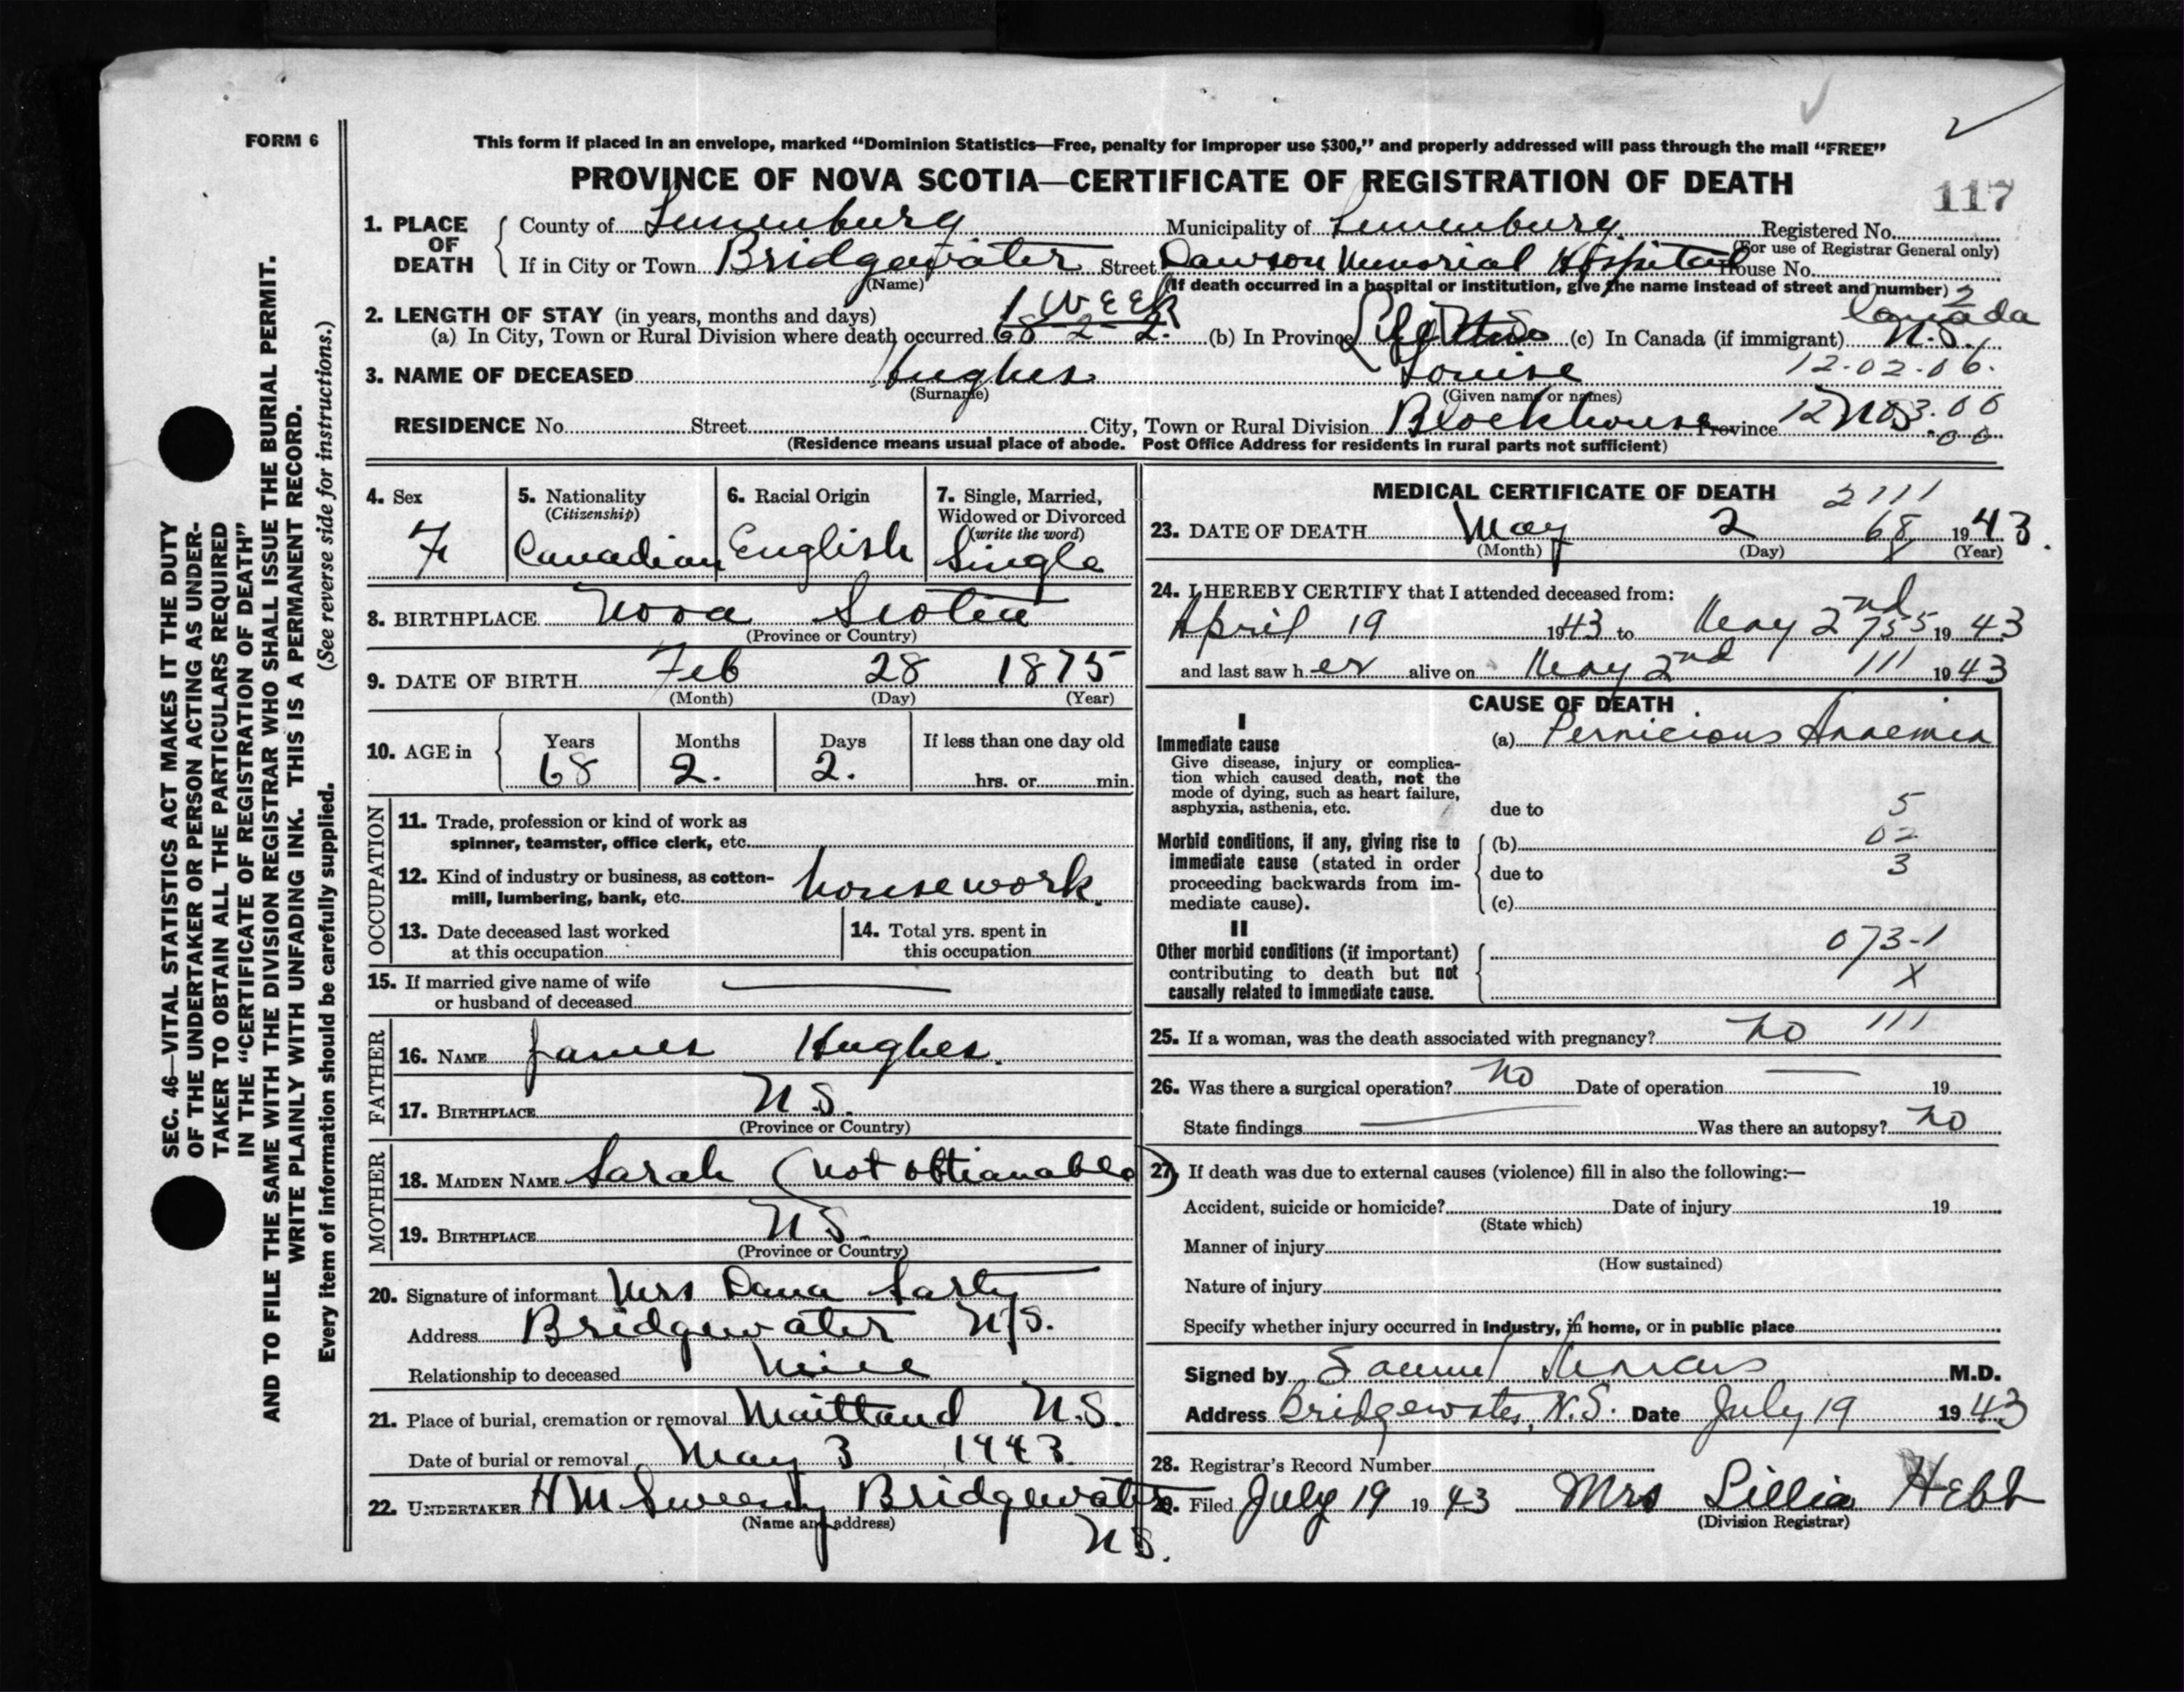 FORM 6
This form if placed in an envelope, marked “Dominion Statistics—Free, penalty for improper use $300,” and properly addressed will pass through the mail “FREE”
PROVINCE OF NOVA SCOTIA—CERTIFICATE OF REGISTRATION OF DEATH
117
1. PLACE OF DEATH
County of Lunenburg Municipality of Lunenburg. Registered No.
(For use of Registrar General only)
If in City or Town Bridgewater Street Dawson Memorial Hospital House No.
(Name) (If death occurred in a hospital or institution, give the name instead of street and number) 2
2. LENGTH OF STAY (in years, months and days) 1 WEEK Canada
(a) In City, Town or Rural Division where death occurred 68 2 2. (b) In Province Life (c) In Canada (if immigrant) N.S.
3. NAME OF DECEASED Hughes Louise 12-02-06.
(Surname) (Given name or names)
RESIDENCE No. Street City, Town or Rural Division Blockhouse Province N.S.
(Residence means usual place of abode. Post Office Address for residents in rural parts not sufficient)
4. Sex
F
5. Nationality
(Citizenship)
Canadian
6. Racial Origin
English
7. Single, Married,
Widowed or Divorced
(write the word)
Single
8. BIRTHPLACE Nova Scotia
(Province or Country)
9. DATE OF BIRTH Feb 28 1875
(Month) (Day) (Year)
10. AGE in
Years Months Days If less than one day old
68 2. 2. hrs. or min.
OCCUPATION
11. Trade, profession or kind of work as
spinner, teamster, office clerk, etc.
12. Kind of industry or business, as cotton-
mill, lumbering, bank, etc. housework.
13. Date deceased last worked
at this occupation
14. Total yrs. spent in
this occupation
15. If married give name of wife
or husband of deceased
FATHER
16. NAME James Hughes.
17. BIRTHPLACE N.S.
(Province or Country)
MOTHER
18. MAIDEN NAME Sarah (not obtianable)
19. BIRTHPLACE N.S.
(Province or Country)
20. Signature of informant Mrs Dana Sarty
Address Bridgewater N.S.
Relationship to deceased Niece
21. Place of burial, cremation or removal Maitland N.S.
Date of burial or removal May 3 1943
22. UNDERTAKER H M Sweeny Bridgewater
(Name and address)
N S.
MEDICAL CERTIFICATE OF DEATH 2111
23. DATE OF DEATH May 2 68 1943.
(Month) (Day) (Year)
24. I HEREBY CERTIFY that I attended deceased from:
April 19 1943 to May 2nd 755 1943
and last saw her alive on May 2nd 111 1943
CAUSE OF DEATH
I
Immediate cause
Give disease, injury or complica-
tion which caused death, not the
mode of dying, such as heart failure,
asphyxia, asthenia, etc.
(a) Pernicious Anaemia
due to 5
Morbid conditions, if any, giving rise to
immediate cause (stated in order
proceeding backwards from im-
mediate cause).
(b) 02
due to 3
(c)
II
Other morbid conditions (if important)
contributing to death but not
causally related to immediate cause.
073-1
X
25. If a woman, was the death associated with pregnancy? no 111
26. Was there a surgical operation? no Date of operation — 19
State findings — Was there an autopsy? no
27. If death was due to external causes (violence) fill in also the following:—
Accident, suicide or homicide? Date of injury 19
(State which)
Manner of injury
(How sustained)
Nature of injury
Specify whether injury occurred in industry, in home, or in public place
Signed by Samuel Marcus M.D.
Address Bridgewater, N.S. Date July 19 1943
28. Registrar's Record Number
29. Filed July 19 1943 Mrs Lillia Hebb
(Division Registrar)
SEC. 46—VITAL STATISTICS ACT MAKES IT THE DUTY
OF THE UNDERTAKER OR PERSON ACTING AS UNDER-
TAKER TO OBTAIN ALL THE PARTICULARS REQUIRED
IN THE “CERTIFICATE OF REGISTRATION OF DEATH”
AND TO FILE THE SAME WITH THE DIVISION REGISTRAR WHO SHALL ISSUE THE BURIAL PERMIT.
WRITE PLAINLY WITH UNFADING INK. THIS IS A PERMANENT RECORD.
Every item of information should be carefully supplied. (See reverse side for instructions.)